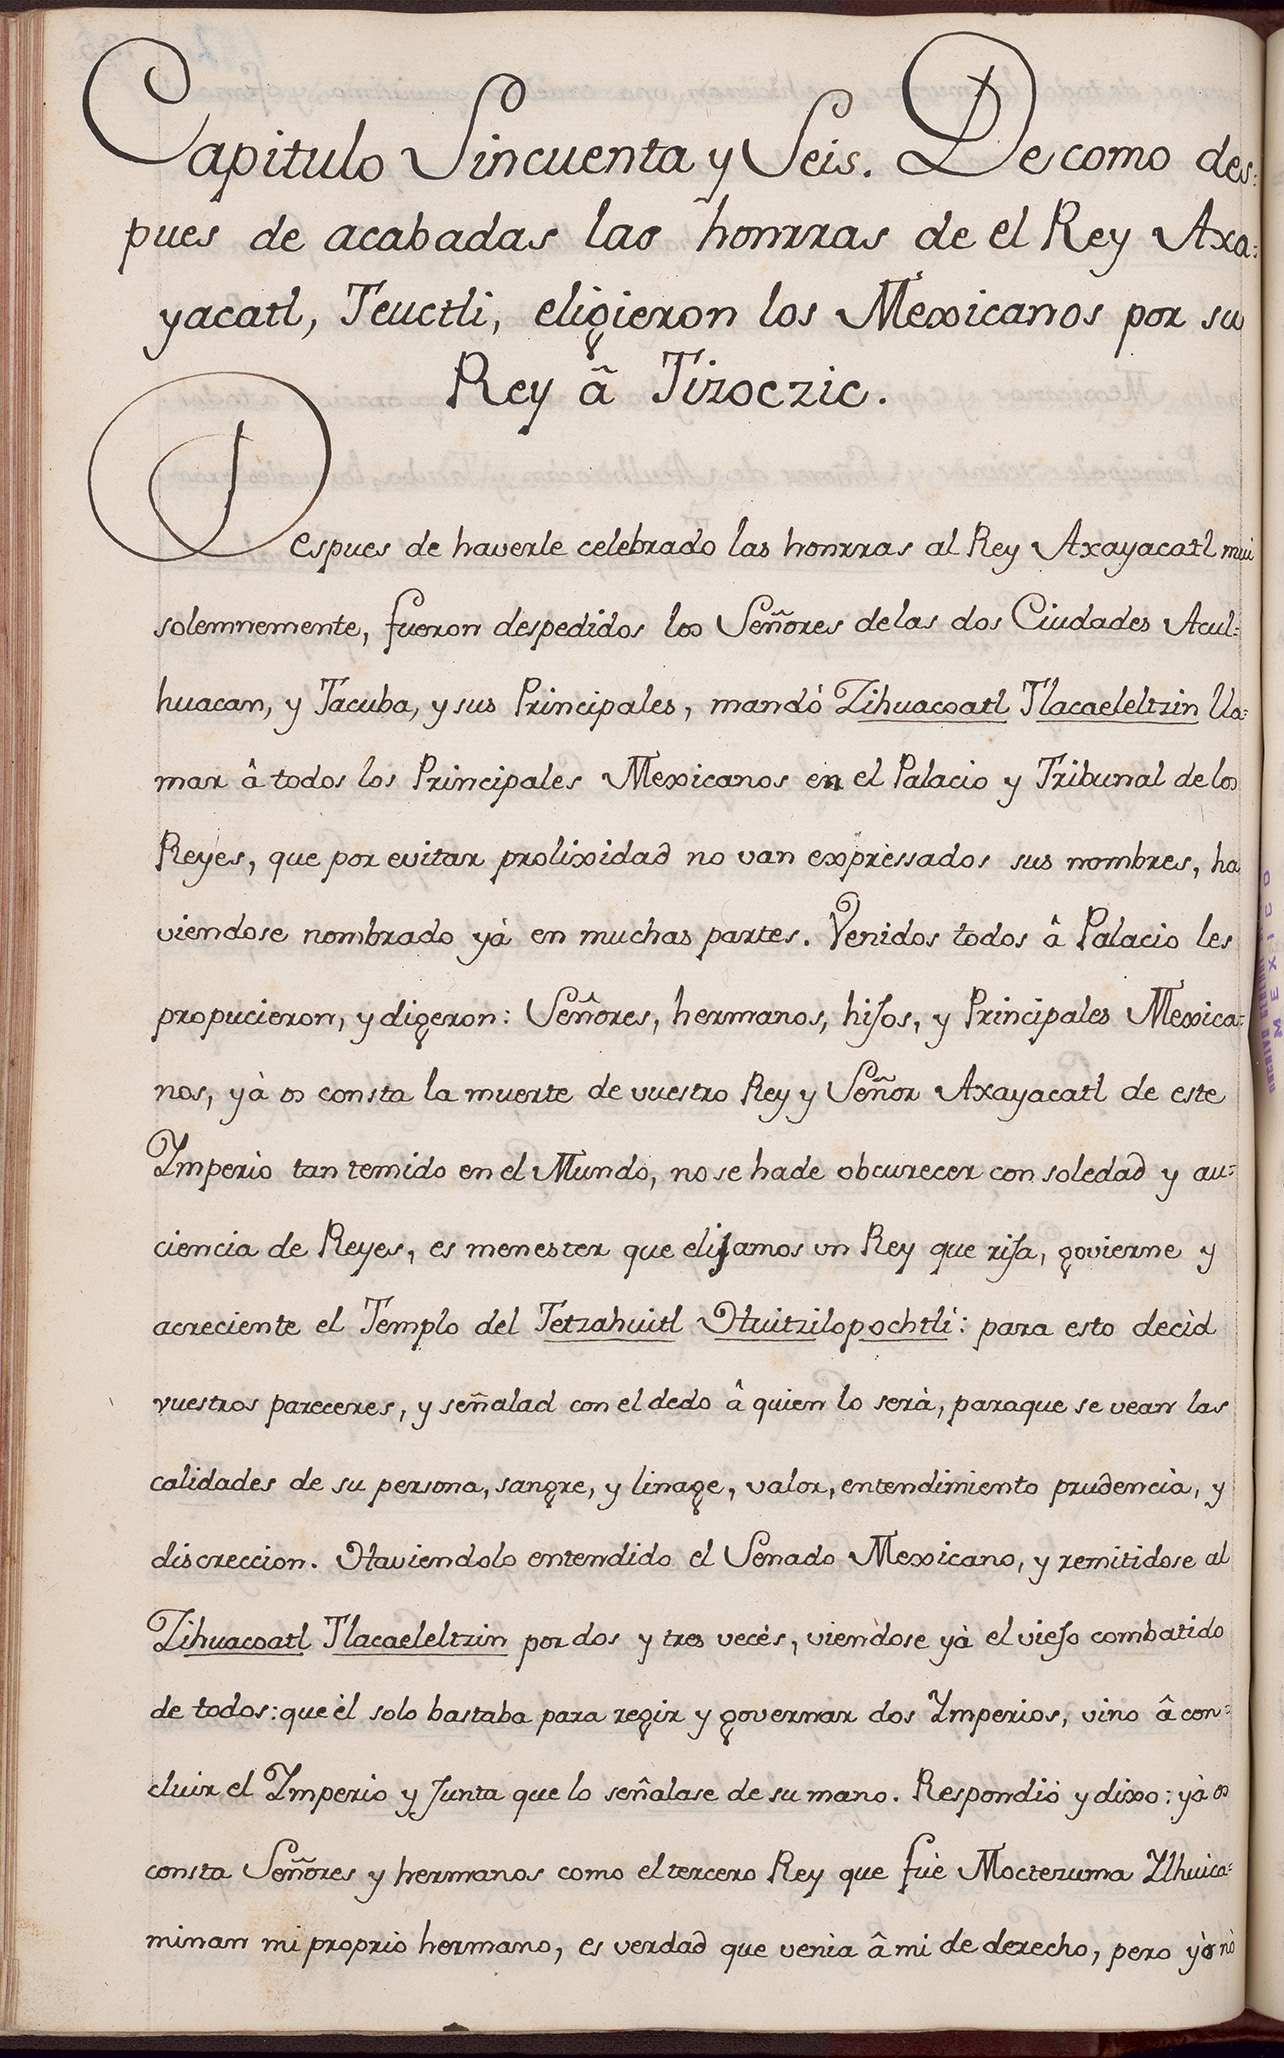 Capitulo Sincuenta y Seis. De como des=
pues de acabadas las honrras de el Rey Axa=
yacatl, Teuctli, eligieron los Mexicanos por su
Rey â Tizoczic.
Despues de haverle celebrado las honrras al Rey Axayacatl mui
solemnemente, fueron despedidos los Señores delas dos Ciudades Acul=
huacan, y Tacuba, y sus Principales, mandó Zihuacoatl Tlacaeleltzin lla=
mar â todos los Principales Mexicanos en el Palacio y Tribunal de los
Reyes, que por evitar prolixidad no van expressados sus nombres, ha
viendose nombrado yà en muchas partes. Venidos todos â Palacio les
propucieron, y digeron: Señores, hermanos, hijos, y Principales Mexica=
nos, yà os consta la muerte de vuestro Rey y Señor Axayacatl de este
Ymperio tan temido en el Mundo, no se hade obcurecer con soledad y au=
ciencia de Reyes, es menester que elijamos un Rey que rija, govierne y
acreciente el Templo del Tetzahuitl Huitzilopochtli: para esto decid
vuestros pareceres, y señalad con el dedo â quien lo serà, paraque se vean las
calidades de su persona, sangre, y linage, valor, entendimiento prudencia, y
discreccion. Haviendolo entendido el Senado Mexicano, y remitidose al
Zihuacoatl Tlacaeleltzin por dos y tres vecès, viendose yà el viejo combatido
de todos: que èl solo bastaba para regir y governar dos Ymperios, vino â con=
cluir el Ymperio y Junta que lo señalase de su mano. Respondió y dixo: yà os
consta Señores y hermanos como el tercero Rey que fuè Moctezuma Ylhuica=
minan mi proprio hermano, es verdad que venia â mi de derecho, pero yò nò